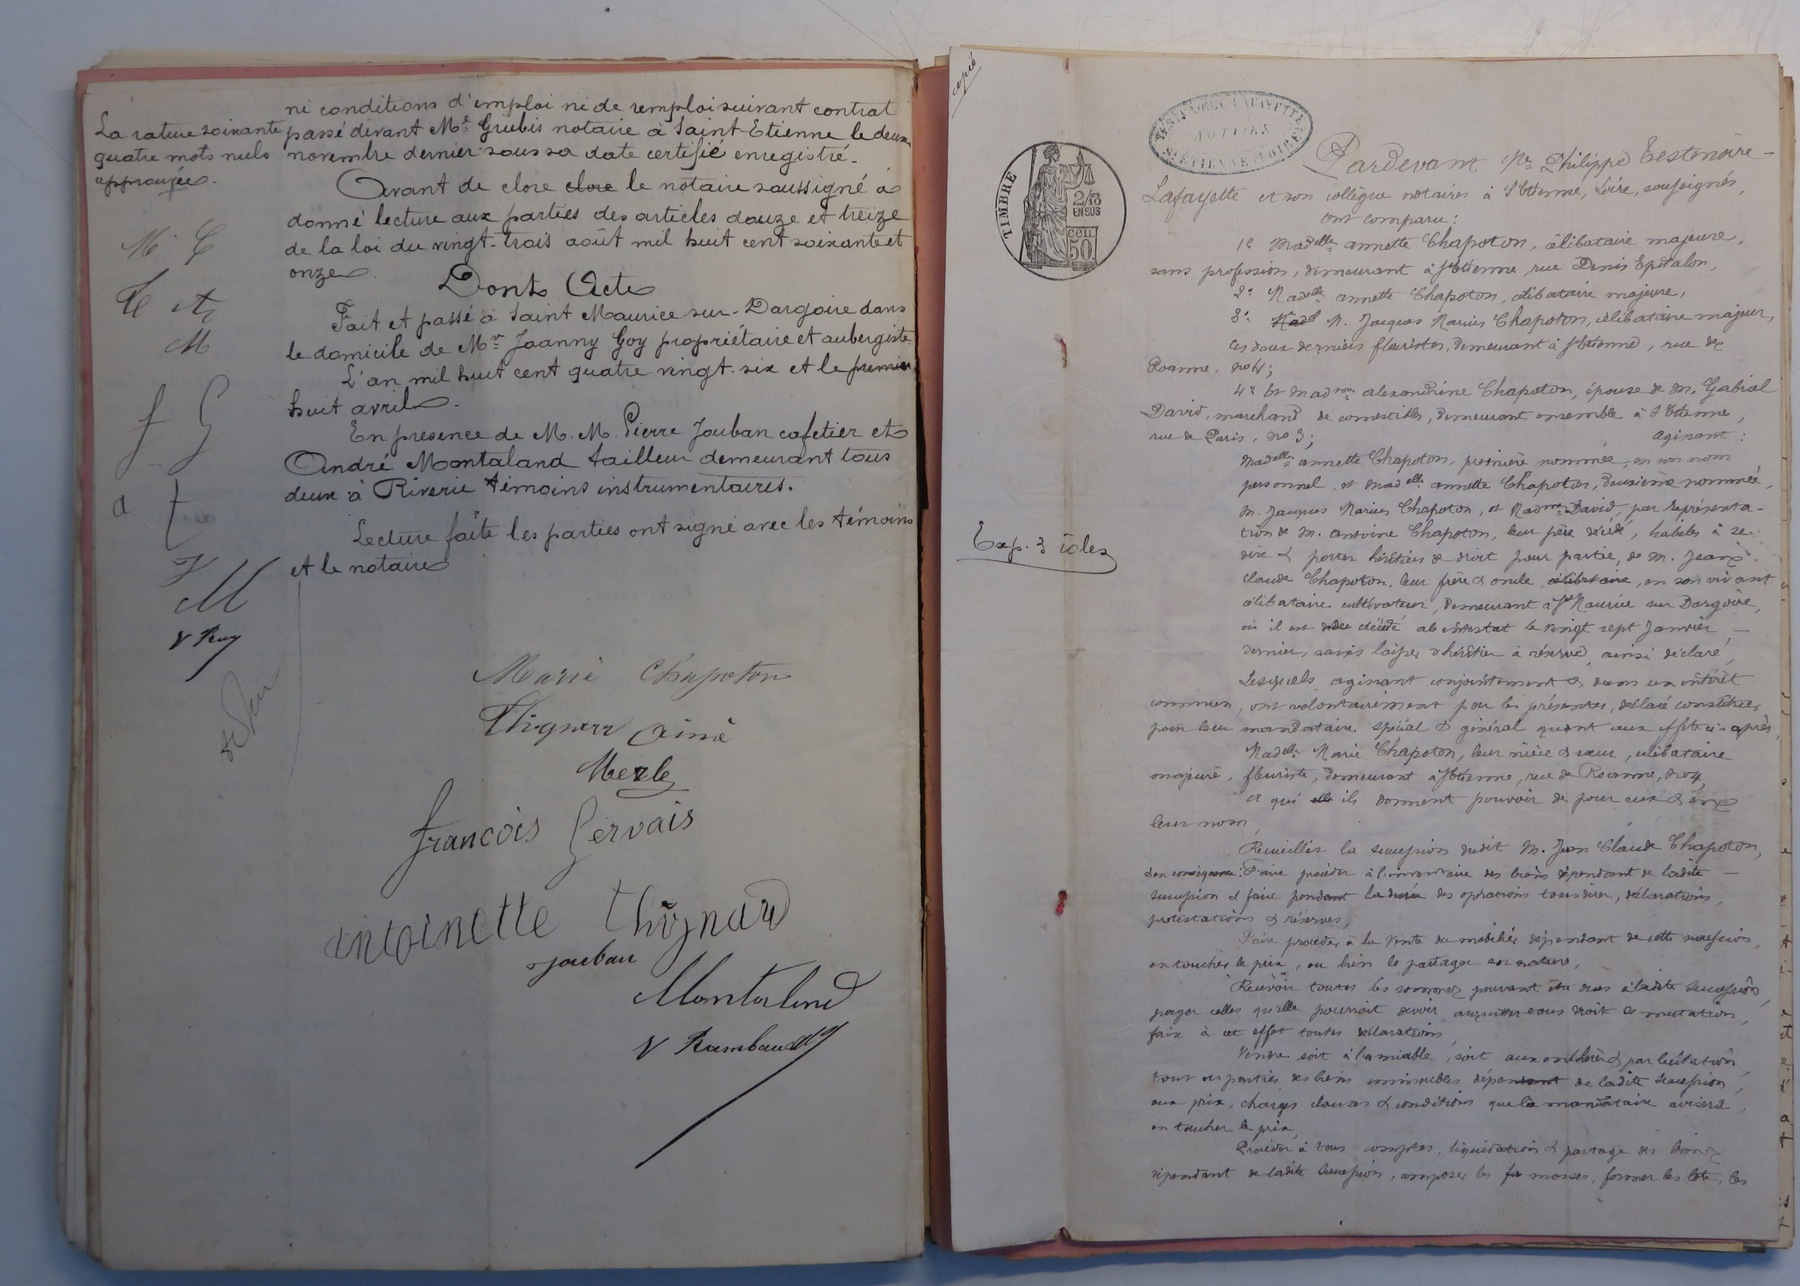 ni conditions d'emploi ni de remploi suivant contrat
passé devant Me Grubis notaire à Saint-Etienne le deux
novembre dernier sous sa date certifié enregistré.
La rature soixante
quatre mots nuls
approuvée.
Avant de clore clore le notaire soussigné a
donné lecture aux parties des articles douze et treize
de la loi du vingt-trois août mil huit cent soixante et
onze.
Dont Acte
Fait et passé à Saint Maurice sur-Dargoire dans
le domicile de Mr Joanny Goy propriétaire et aubergiste.
L'an mil huit cent quatre vingt-six et le premier
huit avril.
En présence de M. M. Pierre Jouban cafetier et
André Montaland tailleur demeurant tous
deux à Riverie témoins instrumentaires.
Lecture faite les parties ont signé avec les témoins
et le notaire
M C
M
f G
a t
J
M
V Ray
Marie Chapoton
Aimé
Merle
francois Gervais
antoinette thignard
Jouban
Montaland
V Rambaud
copié
TIMBRE
2/10
EN SUS
50 cen
NOTAIRE
Exp. 3 rôles
Pardevant Me Philippe Testenoire-
Lafayette et son collègue notaires à St Etienne, Loire, soussignés,
ont comparu:
1º Madelle annette Chapoton, célibataire majeure,
sans profession, demeurant à St Etienne, rue Denis Epitalon,
2º Madelle annette Chapoton, célibataire majeure,
3º Madel M. Jacques Marius Chapoton, célibataire majeur,
ces deux derniers fleuristes, demeurant à St Etienne, rue de
Roanne, no 4;
4º Et madme alexandrine Chapoton, épouse de M. Gabriel
David, marchand de comestibles, demeurant ensemble à St Etienne,
rue de Paris, no 3;
agissant:
Madelle annette Chapoton, première nommée, en son nom
personnel, et madelle annette Chapoton, deuxième nommée,
M. Jacques Marius Chapoton, et Madme David, par représenta-
tion de M. antoine Chapoton, leur père décédé, habiles à se
dire & porter héritiers de droit pour partie, de M. Jean
Claude Chapoton, leur frère & oncle, célibataire, en son vivant
célibataire cultivateur, demeurant à St Maurice sur Dargoire,
où il est décédé ab intestat le vingt sept Janvier
dernier, sans laisser d'héritier à réserve, ainsi déclaré,
Lesquels, agissant conjointement & dans un intérêt
commun, ont volontairement par les présentes, déclaré constituer
pour leur mandataire spécial & général quant aux effets ci-après
Madelle Marie Chapoton, leur nièce & sœur, célibataire
majeure, fleuriste, demeurant à St Etienne, rue de Roanne, no 4,
a qui elle ils donnent pouvoir de pour eux & en
leur nom,
Recueillir la succession dudit M. Jean Claude Chapoton,
en conséquence: Faire procéder à l'inventaire des biens dépendant de ladite
succession & faire pendant la durée des opérations tous dires, déclarations,
protestations & réserves,
Faire procéder à la vente du mobilier dépendant de cette succession,
en toucher le prix, ou bien le partager en nature,
Recevoir toutes les sommes pouvant être dues à ladite succession,
payer celles qu'elle pourrait devoir, acquitter tous droit de mutation,
faire à cet effet toutes déclarations,
Vendre soit à l'amiable, soit aux enchères & par licitation,
tout ou parties des biens immeubles dépendant de ladite succession,
aux prix, charges clauses & conditions que la mandataire avisera,
en toucher le prix,
Procéder à tous comptes, liquidation & partage des biens
dépendant de ladite succession, composer les fa masses, former les lots, les